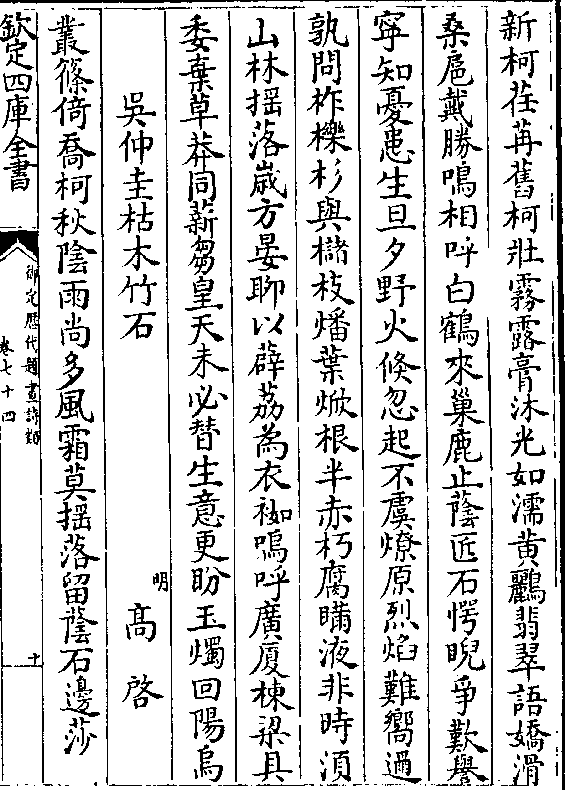 新柯荏苒舊柯壯霧露膏沐光如濡黄鸝翡翠語嬌滑
桑扈戴勝鳴相呼白鶴來巢鹿止蔭匠石愕睨爭歎譽
寧知憂患生旦夕野火倏忽起不虞燎原烈焰難嚮邇
孰問柞櫟杉與櫧枝燔葉焮根半赤朽腐瞞液非時湏
山林揺落嵗方晏聊以薜荔為衣袽嗚呼廣厦棟梁具
委棄草莽同薪芻皇天未必替生意更盼玉燭回陽烏
吳仲圭枯木竹石
明 高啓
叢篠倚喬柯秋陰雨尚多風霜莫揺落留蔭石邊莎
欽定四庫全書
御定歷代題畫詩類
卷七十四
十